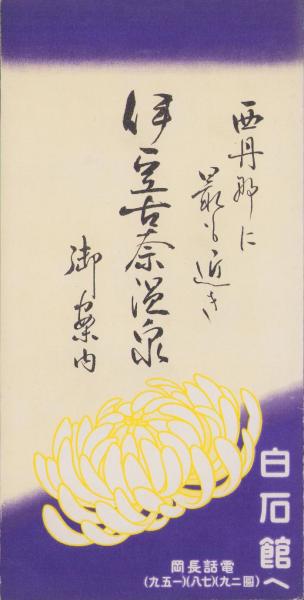 西丹那に
最も近き
伊豆古奈温泉
御案内
白石館へ
電話長岡
(二九)(八七)(一五九)